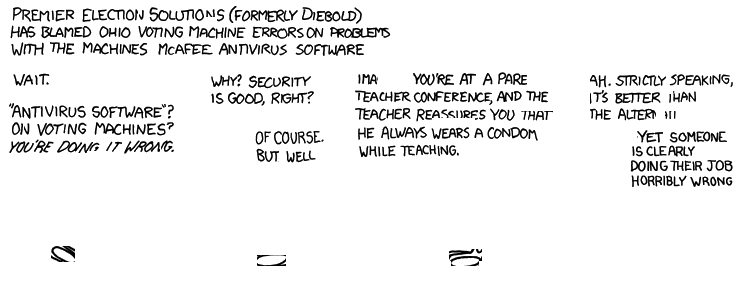 PREMIER ELECTION SOLUTIONS (FORMERLY DIEBOLD)
HAS BLAMED OHIO VOTING MACHINE ERRORS ON PROBLEMS
WITH THE MACHINES MCAFEE ANTIVIRUS SOFTWARE
WAIT.
"ANTIVIRUS SOFTWARE"?
ON VOTING MACHINES?
YOU'RE DOING IT WRONG.
WHY? SECURITY
IS GOOD, RIGHT?
OF COURSE.
BUT WELL
YOU'RE AT A PARE
TEACHER CONFERENCE, AND THE
TEACHER REASSURES YOU THAT
HE ALWAYS WEARS A CONDOM
WHILE TEACHING.
AH. STRICTLY SPEAKING,
IT'S BETTER THAN
THE
YET SOMEONE
IS CLEARLY
DOING THEIR JOB
HORRIBLY WRONG